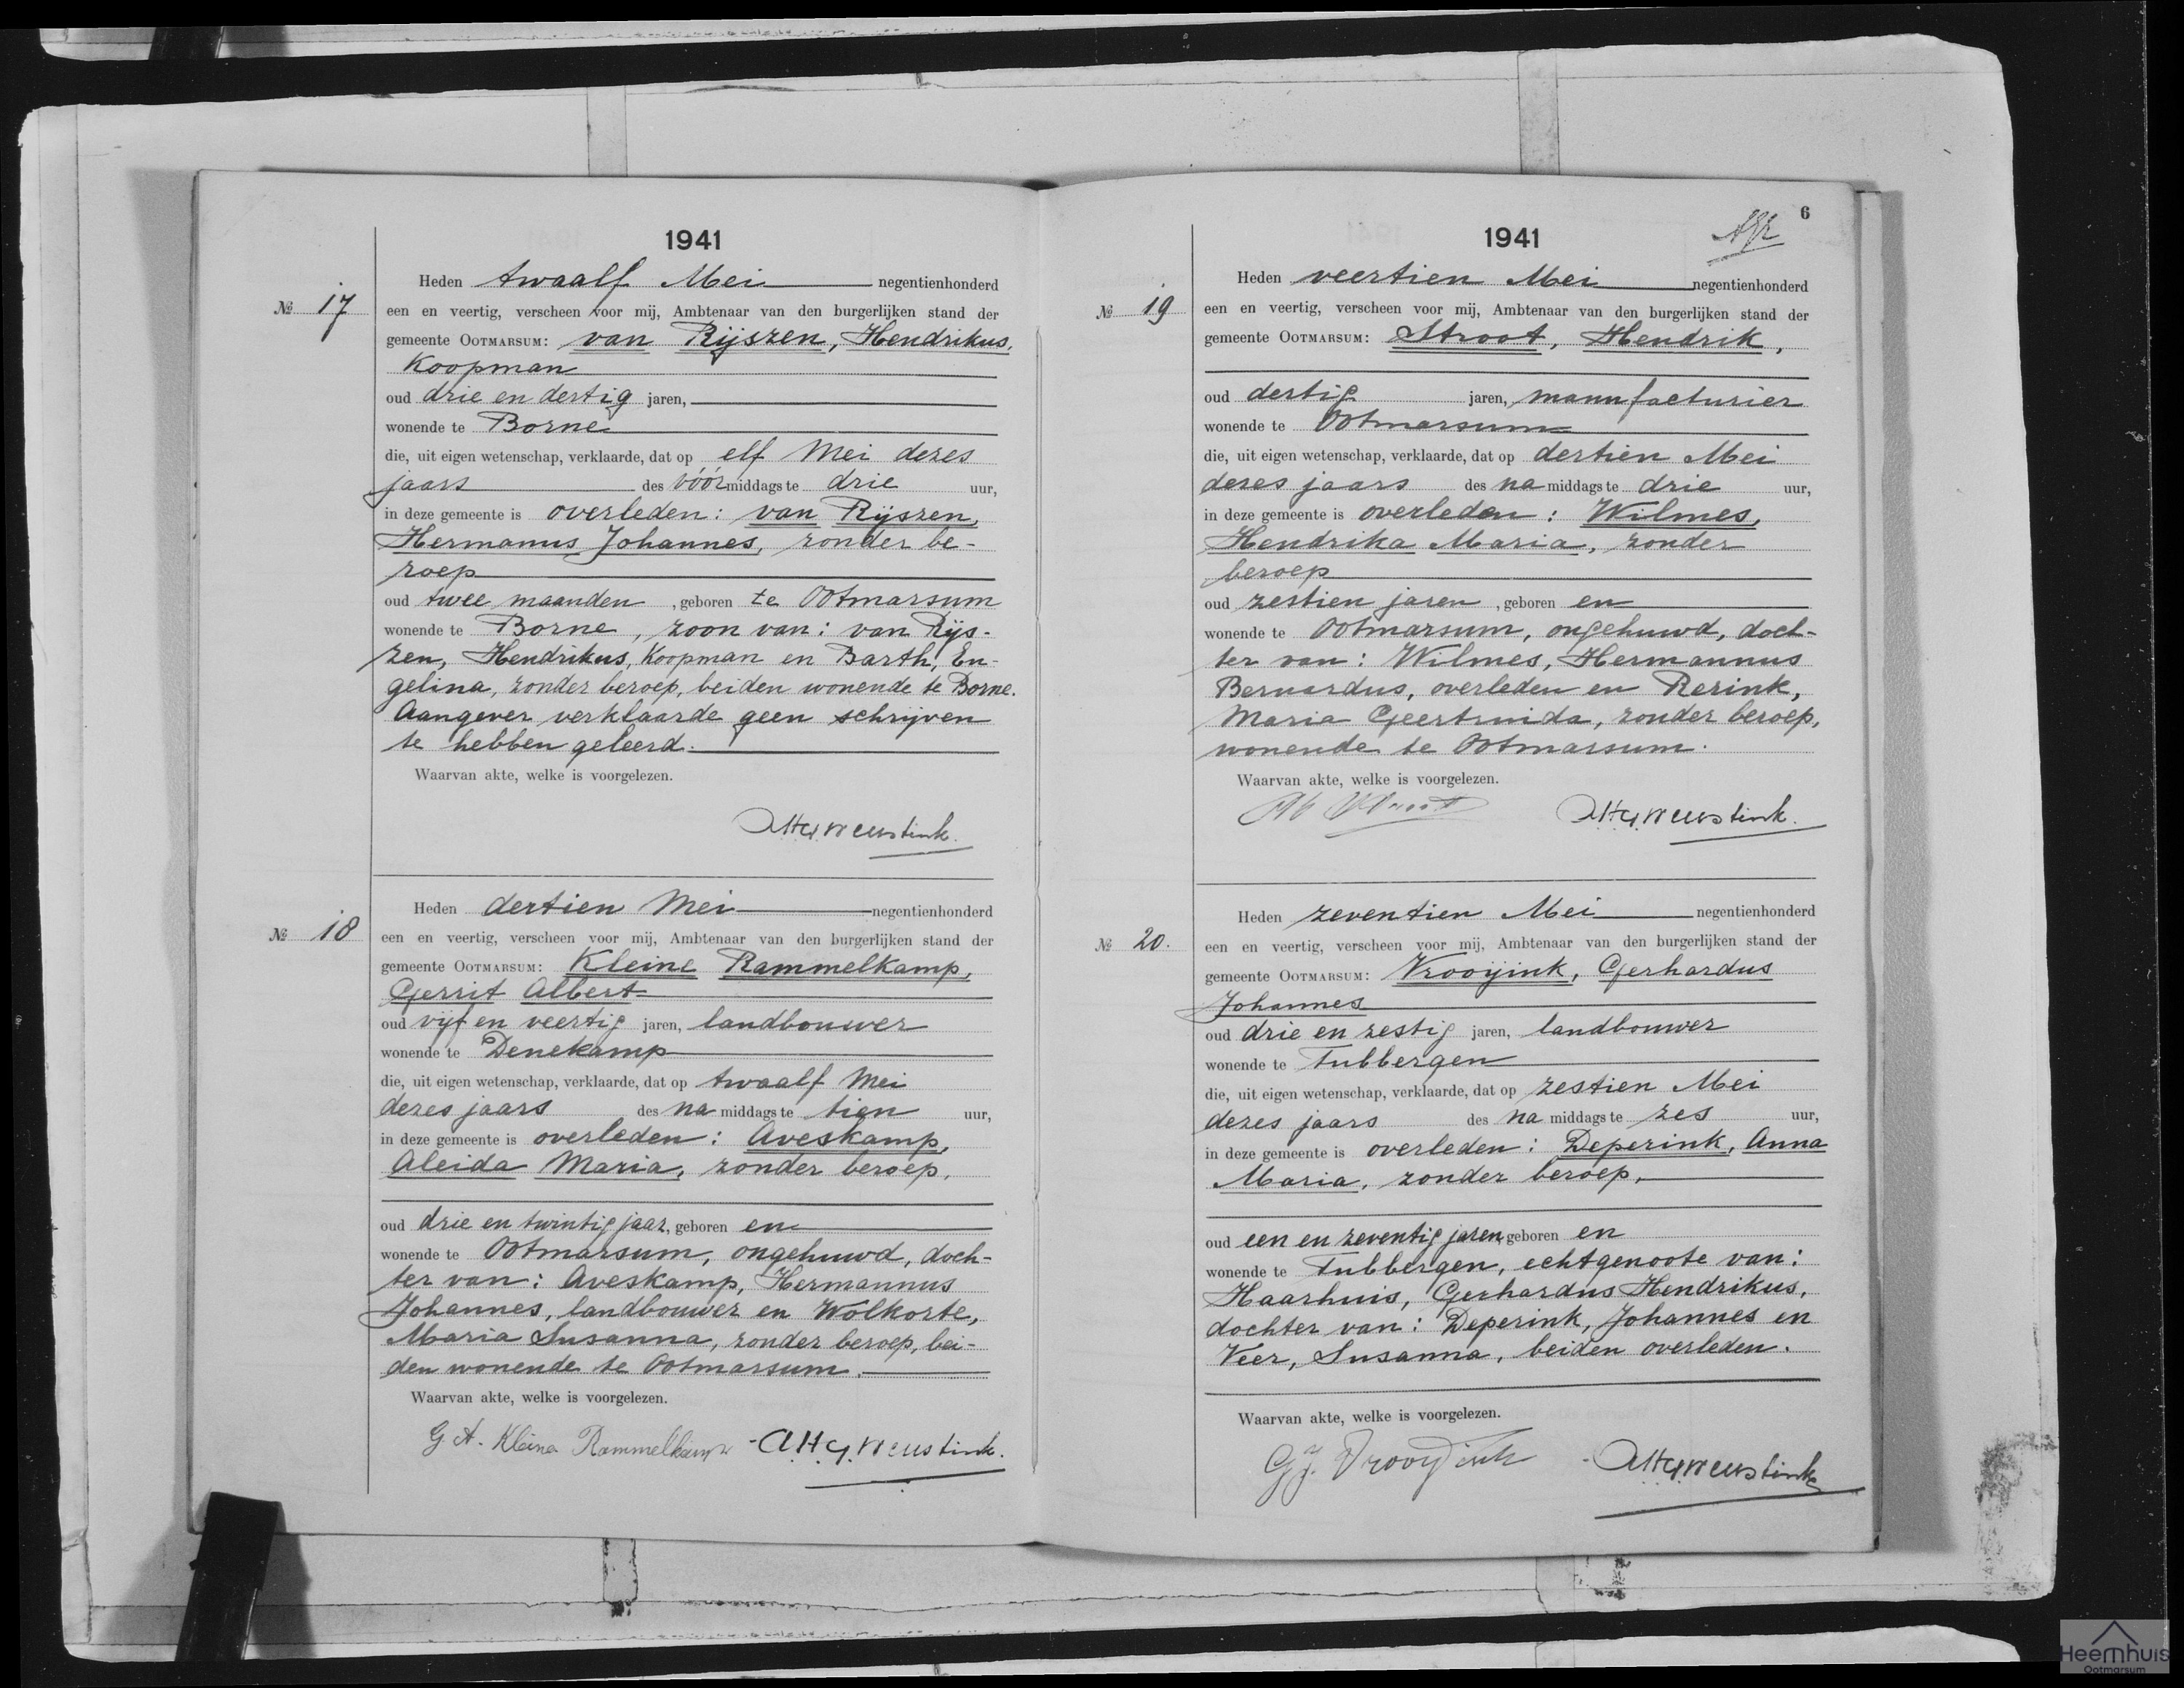 1941
Heden twaalf Mei negentienhonderd
№ 17
een en veertig, verscheen voor mij, Ambtenaar van den burgerlijken stand der
gemeente OOTMARSUM: van Rijszen, Hendrikus,
Koopman
oud drie en dertig jaren,
wonende te Borne
die, uit eigen wetenschap, verklaarde, dat op elf Mei dezes
jaars des vóórmiddags te drie uur,
in deze gemeente is overleden: van Rijszen,
Hermanus Johannes, zonder be-
roep
oud twee maanden, geboren te Ootmarsum
wonende te Borne, zoon van: van Rijs-
zen, Hendrikus, Koopman en Barth, En-
gelina, zonder beroep, beiden wonende te Borne.
Aangever verklaarde geen schrijven
te hebben geleerd.
Waarvan akte, welke is voorgelezen.
Heden dertien Mei negentienhonderd
№ 18
een en veertig, verscheen voor mij, Ambtenaar van den burgerlijken stand der
gemeente OOTMARSUM: Kleine Rammelkamp,
Gerrit Albert
oud vijf en veertig jaren, landbouwer
wonende te Denekamp
die, uit eigen wetenschap, verklaarde, dat op twaalf Mei
dezes jaars des namiddags te tien uur,
in deze gemeente is overleden: Aveskamp,
Aleida Maria, zonder beroep,
oud drie en twintig jaar, geboren en
wonende te Ootmarsum, ongehuwd, doch-
ter van: Aveskamp, Hermannus
Johannes, landbouwer en Wolkorte,
Maria Susanna, zonder beroep, bei-
den wonende te Ootmarsum.
Waarvan akte, welke is voorgelezen.
G. A. Kleine Rammelkamp
6
1941
Heden veertien Mei negentienhonderd
№ 19
een en veertig, verscheen voor mij, Ambtenaar van den burgerlijken stand der
gemeente OOTMARSUM: Stroot, Hendrik,
oud dertig jaren, manufacturier
wonende te Ootmarsum
die, uit eigen wetenschap, verklaarde, dat op dertien Mei
dezes jaars des namiddags te drie uur,
in deze gemeente is overleden: Wilmes,
Hendrika Maria, zonder
beroep
oud zestien jaren, geboren en
wonende te Ootmarsum, ongehuwd, doch-
ter van: Wilmes, Hermannus
Bernardus, overleden en Rerink,
Maria Geertruida, zonder beroep,
wonende te Ootmarsum.
Waarvan akte, welke is voorgelezen.
Heden zeventien Mei negentienhonderd
№ 20.
een en veertig, verscheen voor mij, Ambtenaar van den burgerlijken stand der
gemeente OOTMARSUM: Vrooijink, Gerhardus
Johannes
oud drie en zestig jaren, landbouwer
wonende te Tubbergen
die, uit eigen wetenschap, verklaarde, dat op zestien Mei
dezes jaars des namiddags te zes uur,
in deze gemeente is overleden: Deperink, Anna
Maria, zonder beroep,
oud een en zeventig jaren, geboren en
wonende te Tubbergen, echtgenoote van:
Haarhuis, Gerhardus Hendrikus,
dochter van: Deperink, Johannes en
Veer, Susanna, beiden overleden.
Waarvan akte, welke is voorgelezen.
G J. Vrooyink
Heemhuis
Ootmarsum